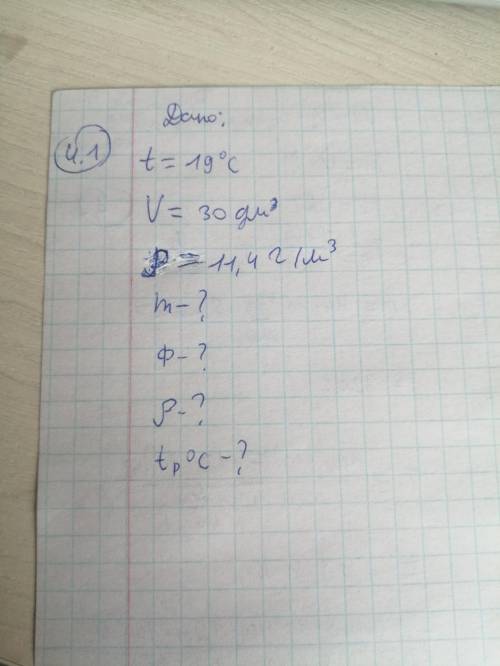 4.1
Дано:
t = 19°C
V = 30 дм³
P = 11,4 г/м³
m - ?
φ - ?
ρ - ?
tₚ °C - ?